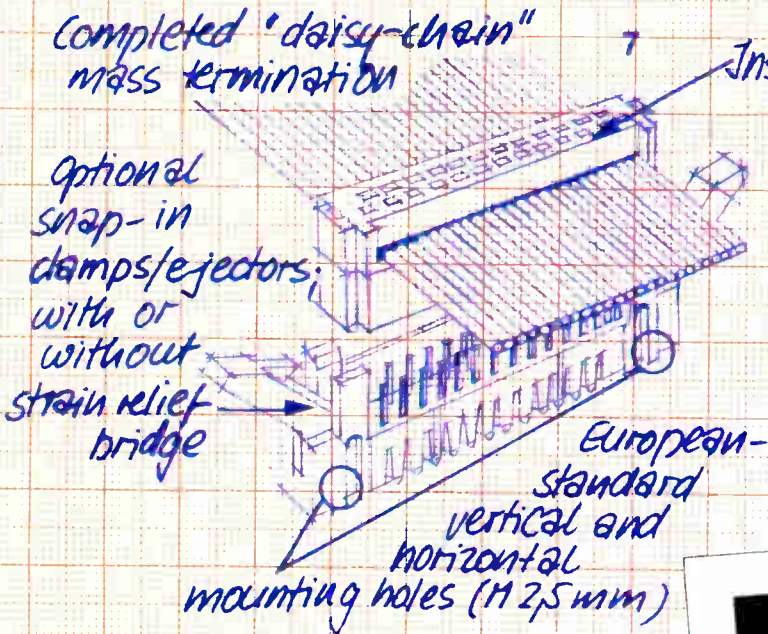 Completed "daisy-chain"
mass termination
Ins
Optional
snap-in
clamps/ejectors;
with or
without
strain relief
bridge
European-
standard
vertical and
horizontal
mounting holes (M 2,5 mm)